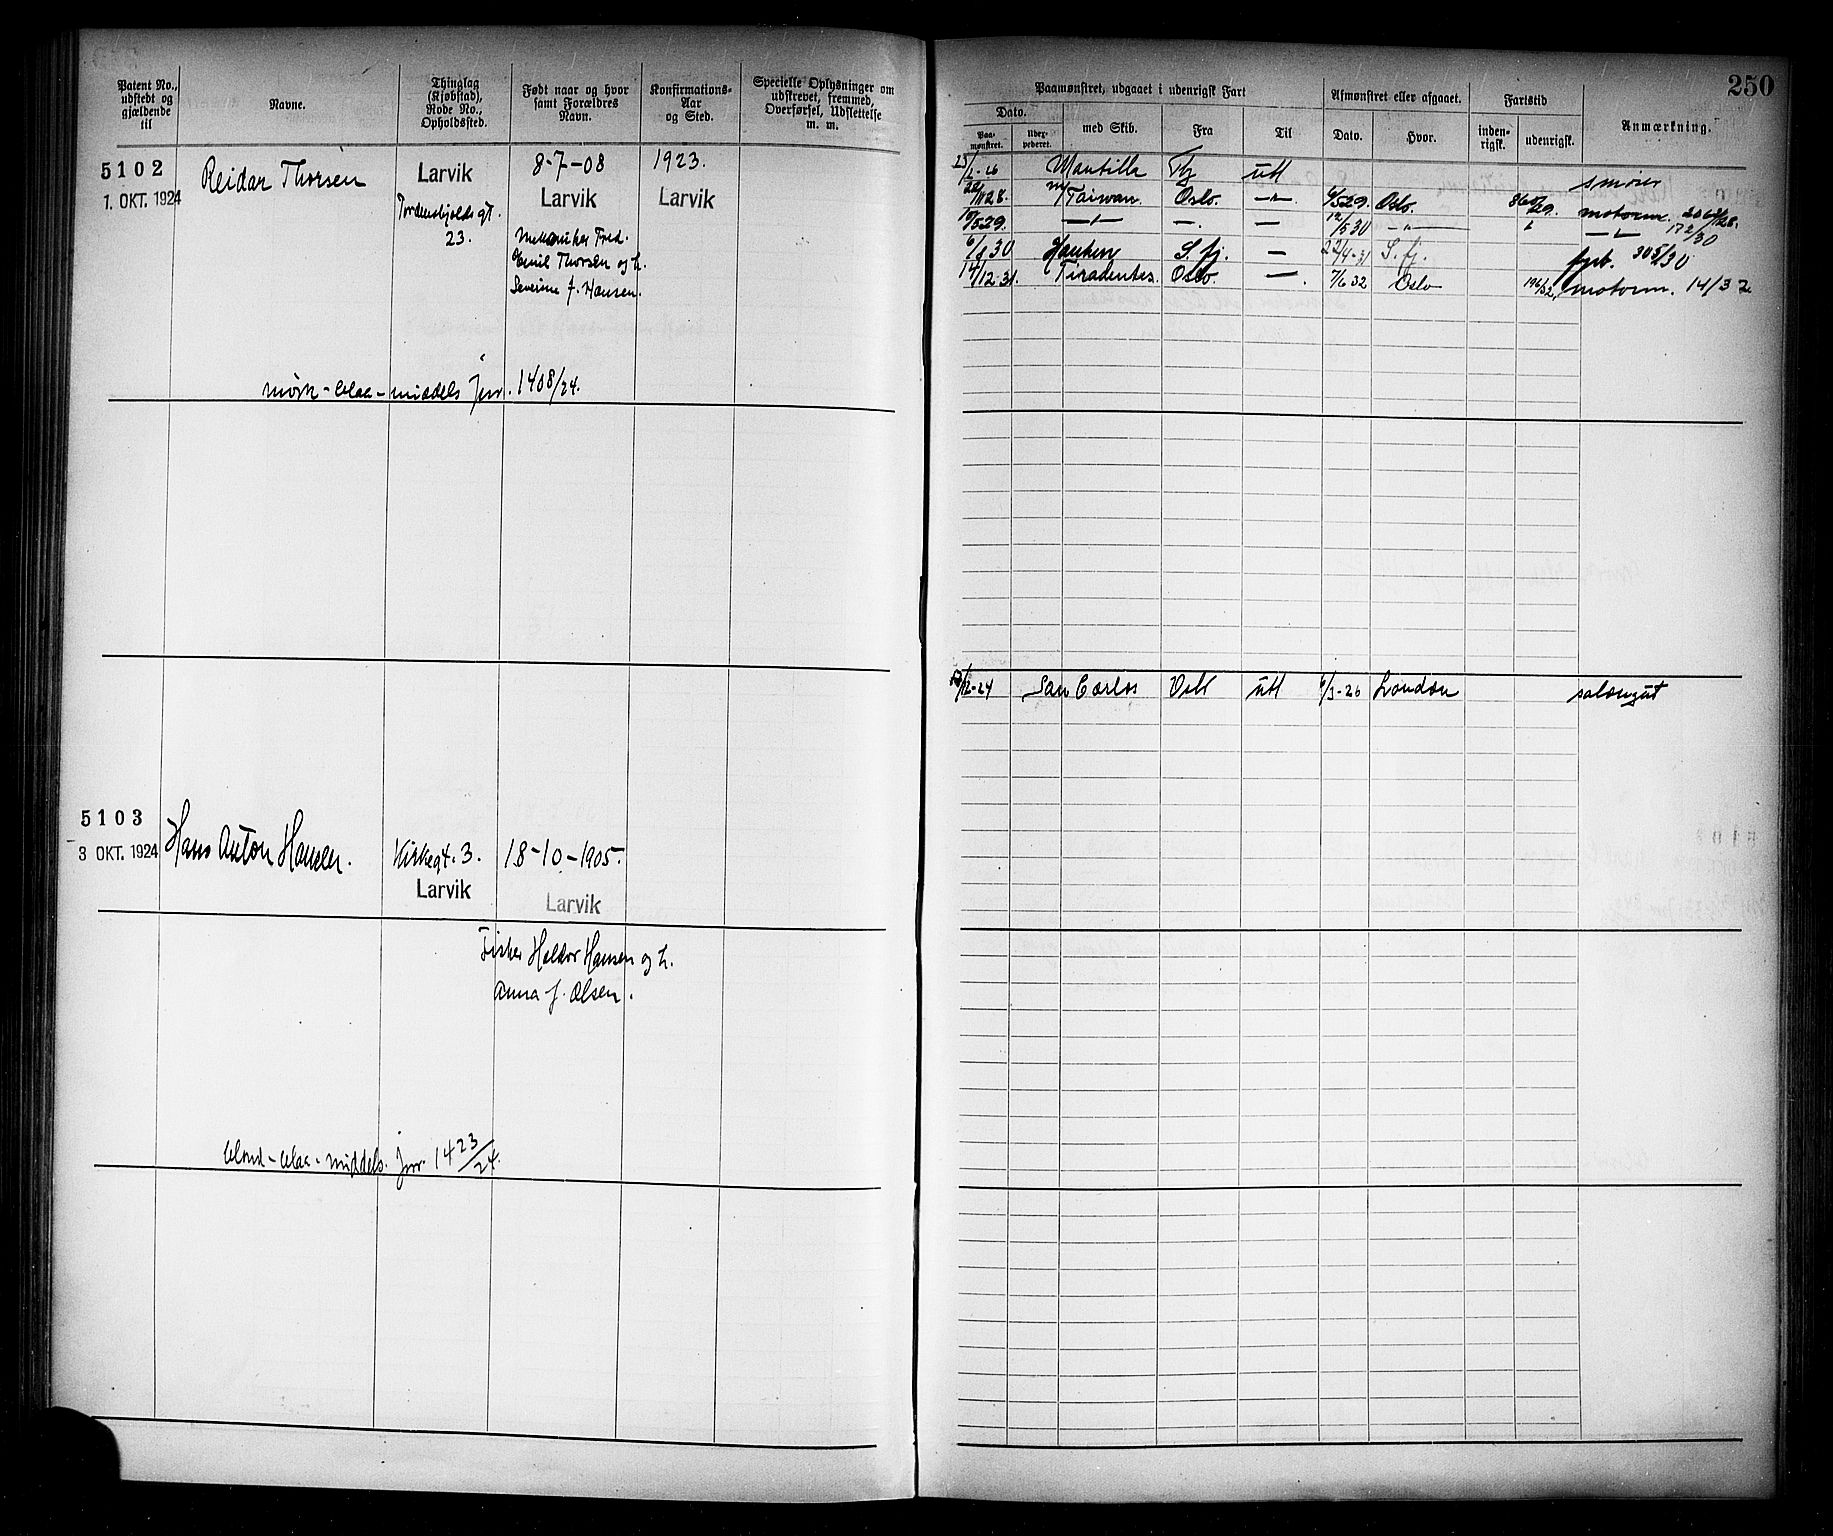 250
Patent No., udstedt og gjældende til
Navne.
Thinglag (Kjøbstad), Rode No., Opholdssted.
Født naar og hvor samt Forældres Navn.
Konfirmations-Aar og Sted.
Specielle Oplysninger om udskrevet, fremmed, Overførsel, Udslettelse m. m.
Paamønstret, udgaaet i udenrigsk Fart
Afmønstret eller afgaaet.
Fartstid
Anmærkning.
Dato.
Paa-mønstret.
med Skib.
Fra
Til
Dato.
Hvor.
inden-rigsk.
udenrigsk.
5102
1. OKT. 1924
Reidar Thorsen
Larvik
Tordenskjolds gt.
23.
8-7-08
Larvik
Mekaniker Fred.
Emil Thorsen og h.
Severine f. Hansen.
1923.
Larvik
mørk - blaa - middels Jnr. 1408/24.
Mantilla utt smører
M/ Taiwan. Oslo. 4/5 29. Oslo. motorm.
10/5 29. — — — 12/5 30 172/30
6/8 30 Hauken S. fj. — 22/4-31 S. fj. fyrb. 305/30
14/12-31. Tiradentes. Oslo. — 7/6 32 Oslo motorm. 14/32
5103
3 OKT. 1924
Hans Anton Hansen.
Kirkegt. 3.
Larvik
18-10-1905.
Larvik
Fisker Haldor Hansen og h.
Anna f. Olsen.
blond - blaa - middels. Jnr. 1423/24.
/12-24 San Carlos utt 6/3-26 London salongut